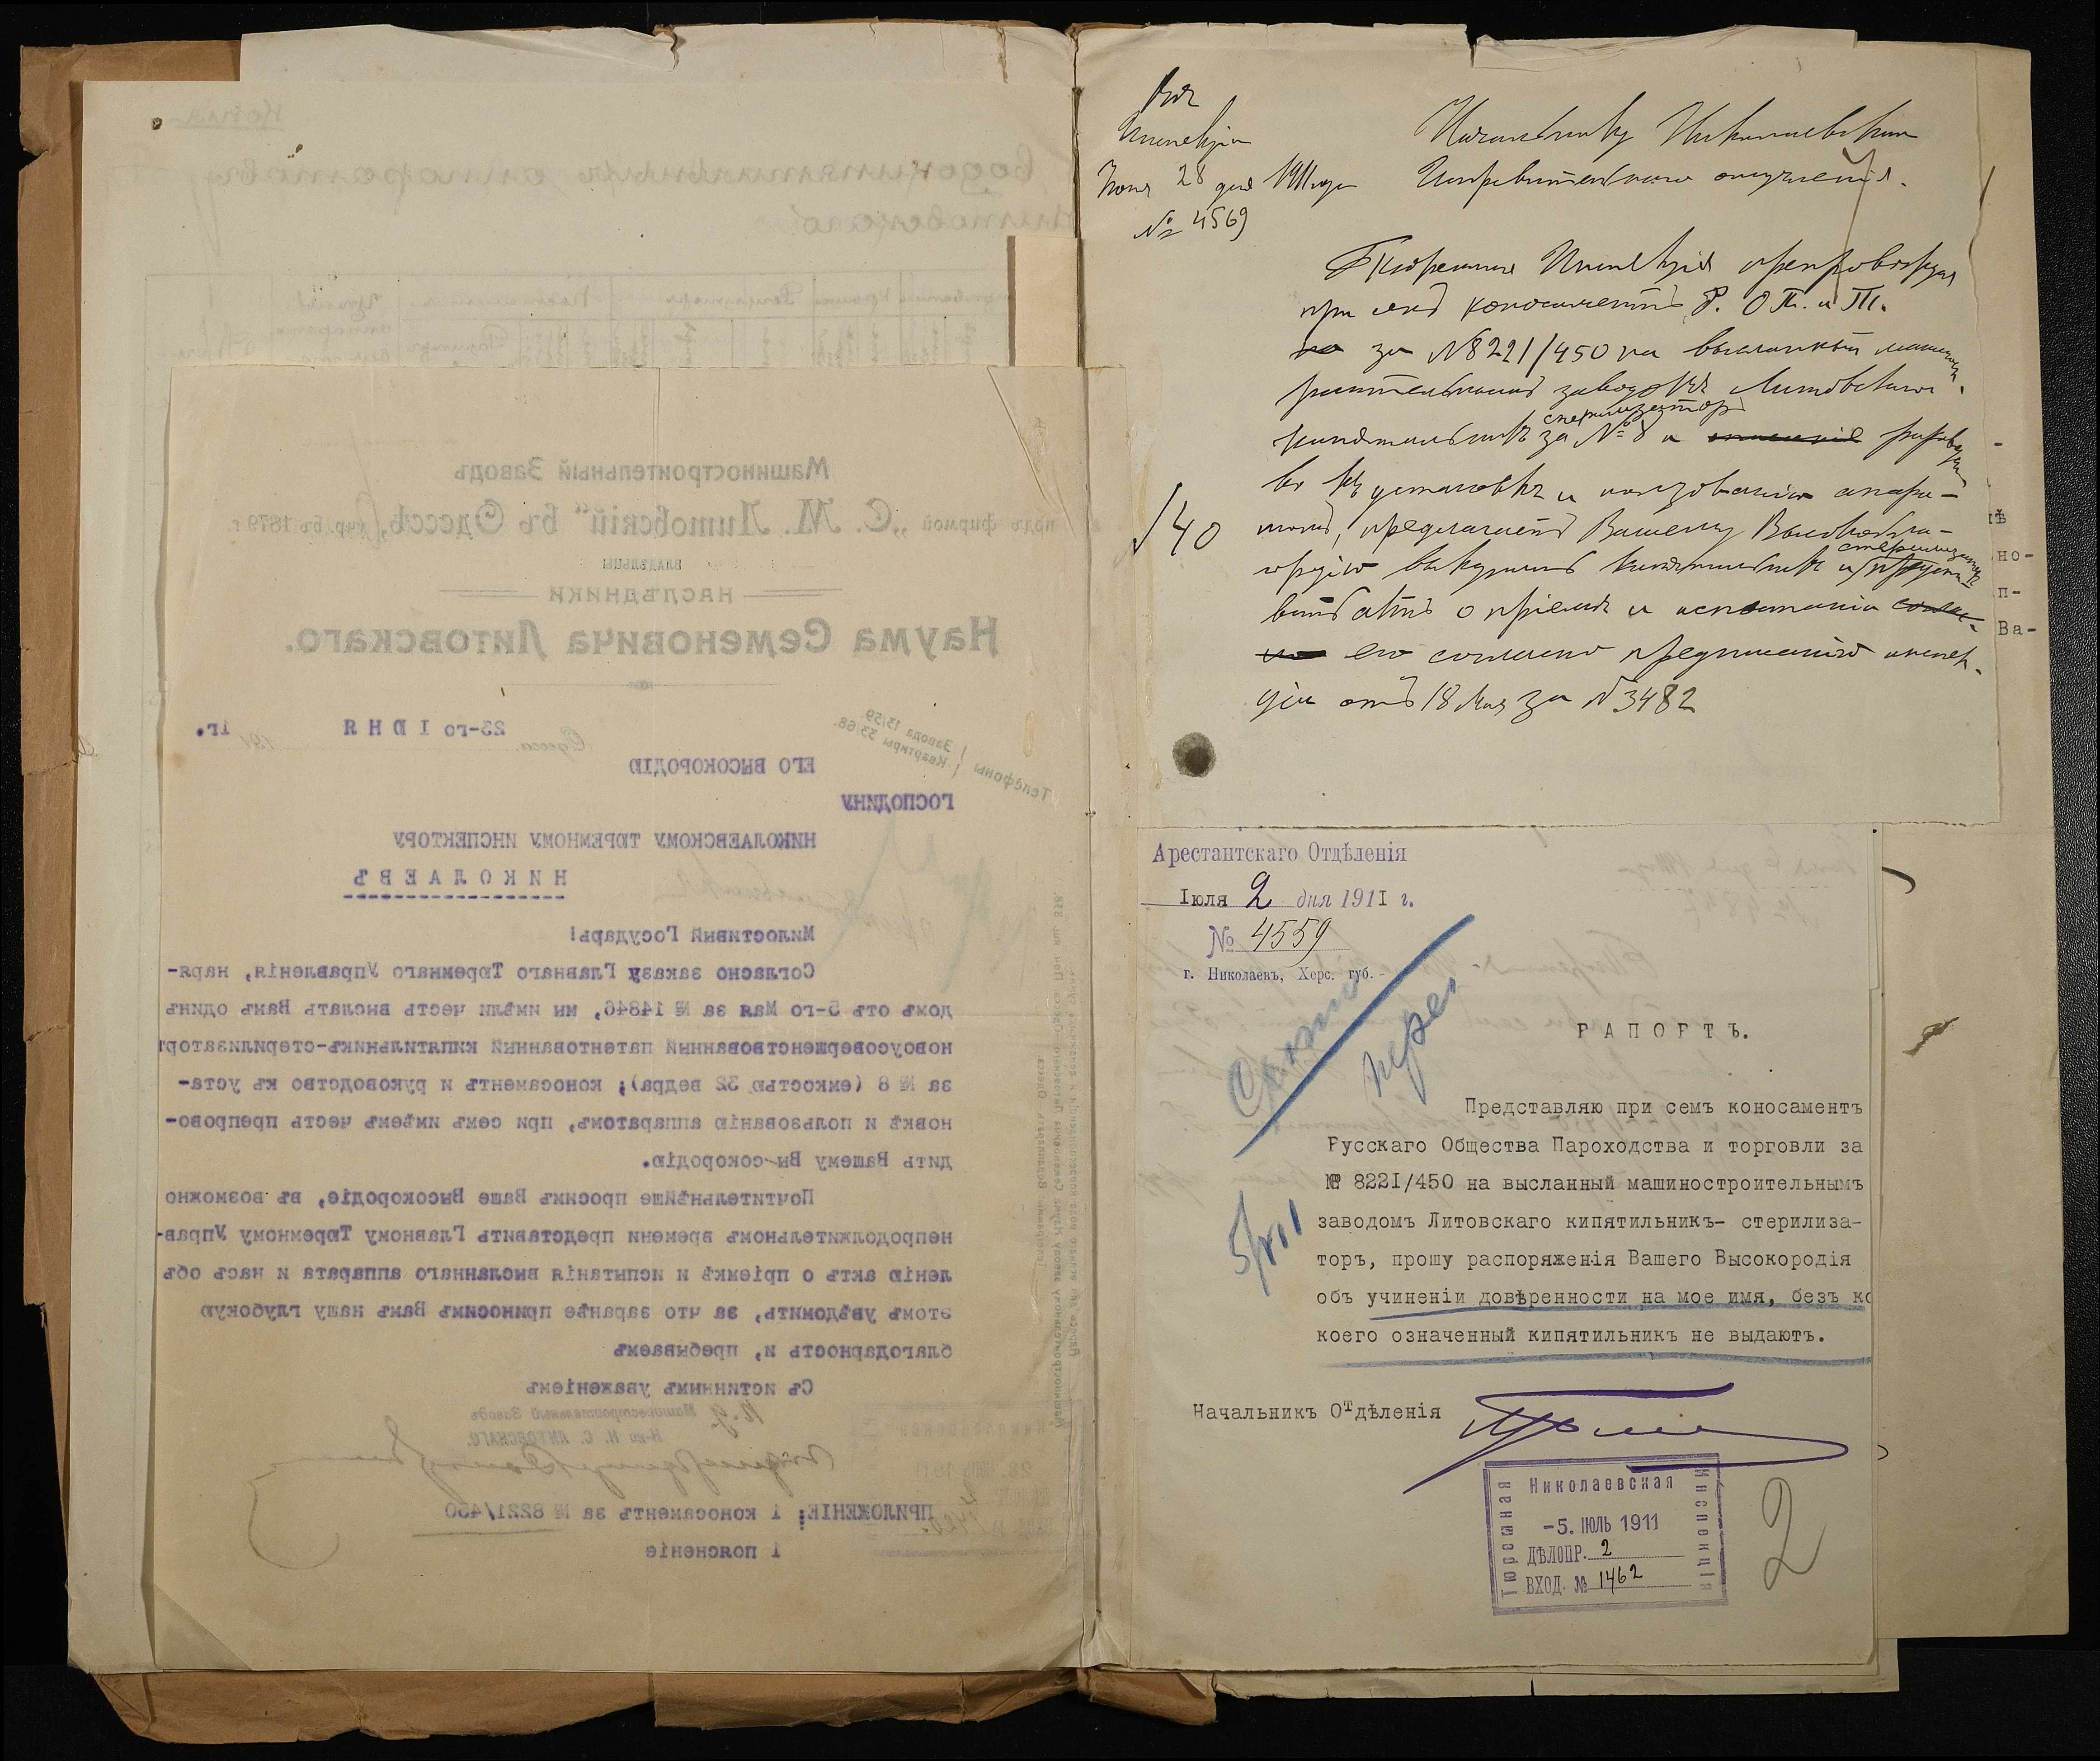 Машиностроительный Заводъ
подъ фирмой „С. М. Литовскiй“ въ Одессѣ, учр. въ 1879 г.
ВЛАДѢЛЬЦЫ
НАСЛѢДНИКИ
Наума Семеновича Литовскаго.
Телефоны { Завода 13/59. Квартиры 33/68.
Одесса 23-го IЮНЯ 191 1г.
ЕГО ВЫСОКОРОДIЮ
ГОСПОДИНУ
НИКОЛАЕВСКОМУ ТЮРЕМНОМУ ИНСПЕКТОРУ
НИКОЛАЕВЪ
Милостивый Государь!
Согласно заказу Главнаго Тюремнаго Управленiя, наря-
домъ отъ 5-го Мая за № 14846, мы имѣли честь выслать Вамъ одинъ
новоусовершенствованный патентованный кипятильникъ-стерилизаторъ
за № 8 (емкостью 32 ведра); коносаментъ и руководство къ уста-
новкѣ и пользованiю аппаратомъ, при семъ имѣемъ честь препрово-
дить Вашему Вы-сокородiю.
Почтительнѣйше просимъ Ваше Высокородiе, въ возможно
непродолжительномъ времени представить Главному Тюремному Управ-
ленiю актъ о прiемкѣ и испытанiя высланнаго аппарата и насъ объ
этомъ увѣдомить, за что заранѣе приносимъ Вамъ нашу глубокую
благодарность и, пребываемъ
Съ истиннымъ уваженiемъ
Машиностроительный Заводъ
Н-ки Н. С. ЛИТОВСКАГО.
ПРИЛОЖЕНIЕ: 1 коносаментъ за № 8221/450
1 поясненiе
Копiя
водокипятильныхъ аппаратовъ
Литовскаго
Инспекцiя
Iюня 28 дня 1911 года
№ 4569
Начальнику Николаевскаго
Исправительнаго отдѣленiя.
Тюремная Инспекцiя препровождая
при семъ коносаментъ Р. О. П. и Т.
за №8221/450 на высланный машино-
строительнымъ заводомъ Литовскаго
стерилизаторъ
кипятильникъ за № 8 и руководст
во къ установкѣ и пользованiю аппара-
томъ, предлагаетъ Вашему Высокобла-
стерилизаторъ
городiю выкупить кипятильникъ и предста
вить актъ о прiемѣ и испытанiи
его согласно предписанiю инспек-
цiи отъ 18 Мая за №3482
140
Арестантскаго Отдѣленiя
Iюля 2 дня 1911 г.
№ 4559
г. Николаевъ, Херс. губ.
РАПОРТЪ.
Представляю при семъ коносаментъ
Русскаго Общества Пароходства и торговли за
№ 8221/450 на высланный машиностроительнымъ
заводомъ Литовскаго кипятильникъ- стерилиза-
торъ, прошу распоряженiя Вашего Высокородiя
объ учиненiи довѣренности на мое имя, безъ ко
коего означенный кипятильникъ не выдаютъ.
5/VII
Начальникъ Отдѣленiя
Николаевская
Тюремная Инспекцiя
-5. IЮЛЬ 1911
ДѢЛОПР. 2
ВХОД. № 1462
2
но-
п-
Ва-